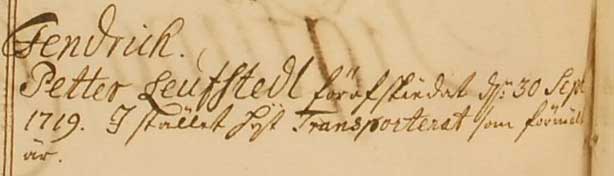 Fendrich.
Petter Leufstedt förafskiedat d: 30 Sept
1719. I stället hijt Transporterat som förmält
är.